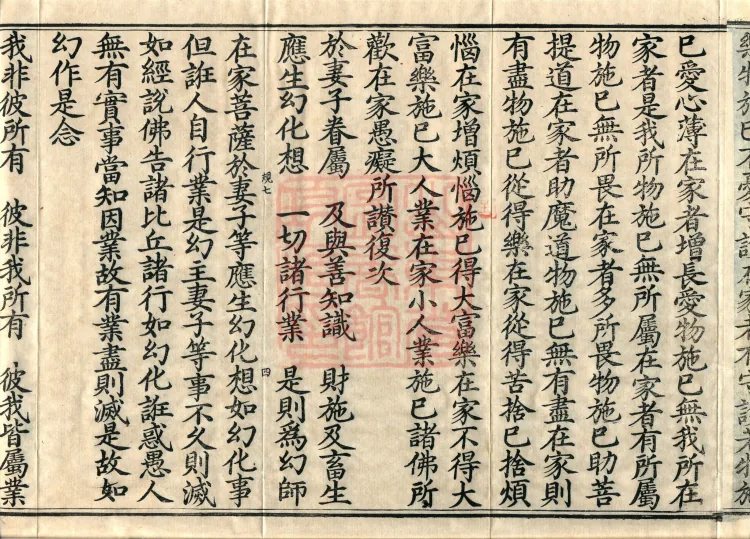 已愛心薄在家者增長愛物施已無我所在
家者是我所物施已無所屬在家者有所屬
物施已無所畏在家者多所畏物施已助菩
提道在家者助魔道物施已無有盡在家則
有盡物施已從得樂在家從得苦捨已捨煩
惱在家增煩惱施已得大富樂在家不得大
富樂施已大人業在家小人業施已諸佛所
歡在家愚癡所讃復次
於妻子眷屬 及與善知識 財施及畜生
應生幻化想 一切諸行業 是則爲幻師
規七 四
在家菩薩於妻子等應生幻化想如幻化事
但誑人目行業是幻主妻子等事不久則滅
如經說佛告諸比丘諸行如幻化誑惑愚人
無有實事當知因業故有業盡則滅是故如
幻作是念
我非彼所有 彼非我所有 彼我皆屬業